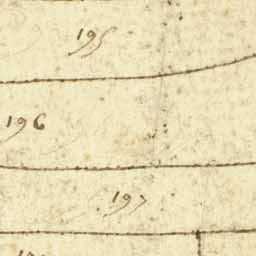 195
196
197